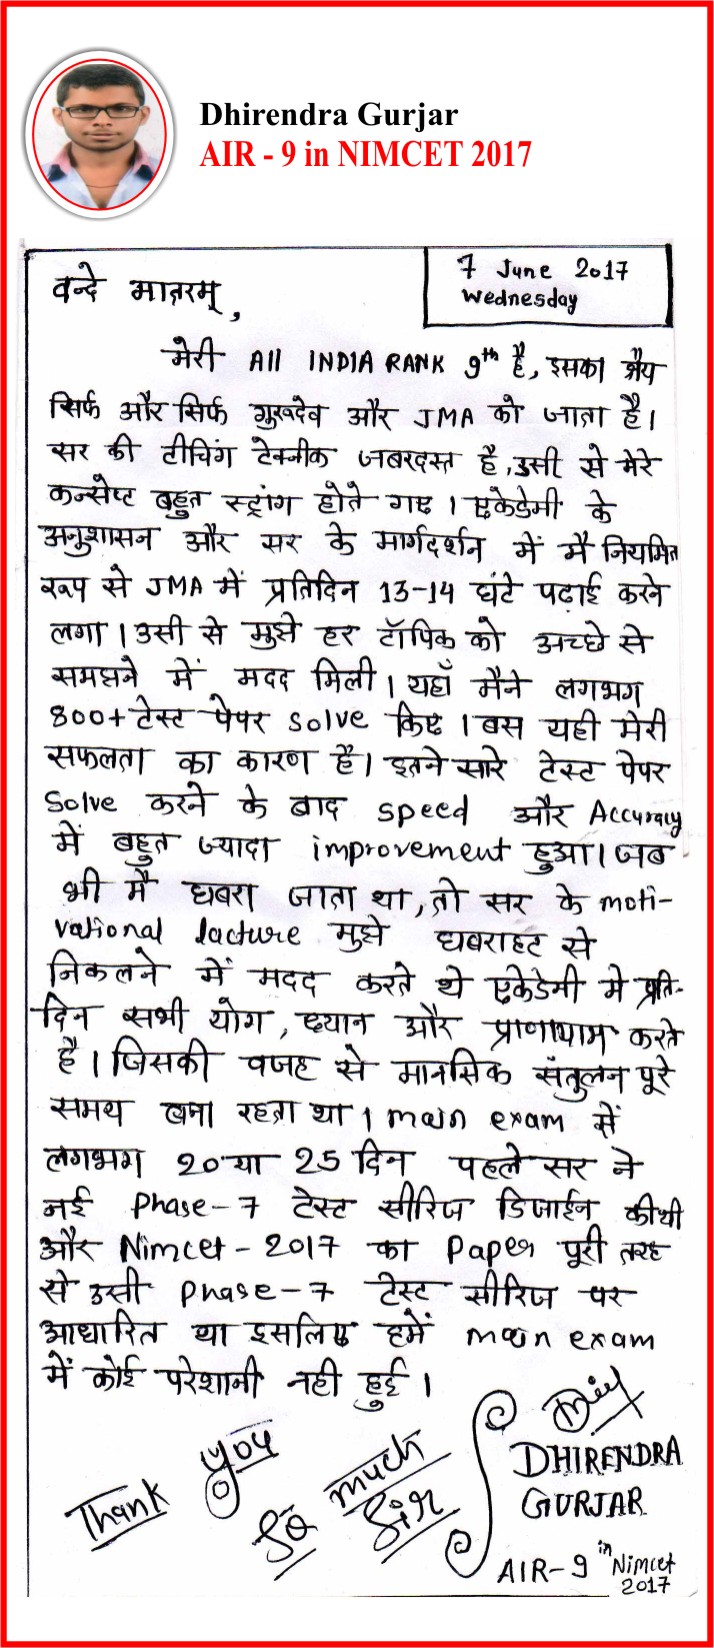 Dhirendra Gurjar
AIR - 9 in NIMCET 2017
7 June 2017
Wednesday
वन्दे मातरम्,
मेरी All INDIA RANK 9th है, इसका श्रेय
सिर्फ और सिर्फ गुरुदेव और JMA को जाता है।
सर की टीचिंग टेक्नीक जबरदस्त है, उसी से मेरे
कन्सेप्ट बहुत स्ट्रांग होते गए। एकेडेमी के
अनुशासन और सर के मार्गदर्शन में मैं नियमित
रूप से JMA में प्रतिदिन 13-14 घंटे पढ़ाई करने
लगा। उसी से मुझे हर टॉपिक को अच्छे से
समझने में मदद मिली। यहाँ मैंने लगभग
800+ टेस्ट पेपर solve किए। बस यही मेरी
सफलता का कारण है। इतने सारे टेस्ट पेपर
solve करने के बाद speed और Accuracy
में बहुत ज्यादा improvement हुआ। जब
भी मैं घबरा जाता था, तो सर के moti-
vational lacture मुझे घबराहट से
निकलने में मदद करते थे एकेडेमी में प्रति-
दिन सभी योग, ध्यान और प्राणायाम करते
है। जिसकी वजह से मानसिक संतुलन पूरे
समय बना रहता था। main exam से
लगभग 20 या 25 दिन पहले सर ने
नई Phase-7 टेस्ट सीरिज डिजाईन की थी
और Nimcet-2017 का Paper पूरी तरह
से उसी Phase-7 टेस्ट सीरिज पर
आधारित था इसलिए हमें main exam
में कोई परेशानी नही हुई।
Thank you so much Sir
DHIRENDRA
GURJAR
AIR-9 in Nimcet
2017